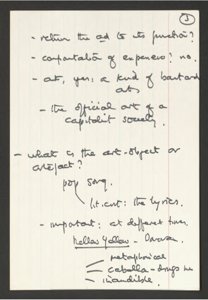 3
- return the ad to its function?
- comportation of expenses? no.
- art, yes; a kind of bastard
art
- the official art of a
capitalist society.
- what is the art-object or
artefact?
pop song.
lit. crit: the lyrics.
- important: at different times.
Mellow Yellow - Donovan
metaphorical
- drugs
inaudible.